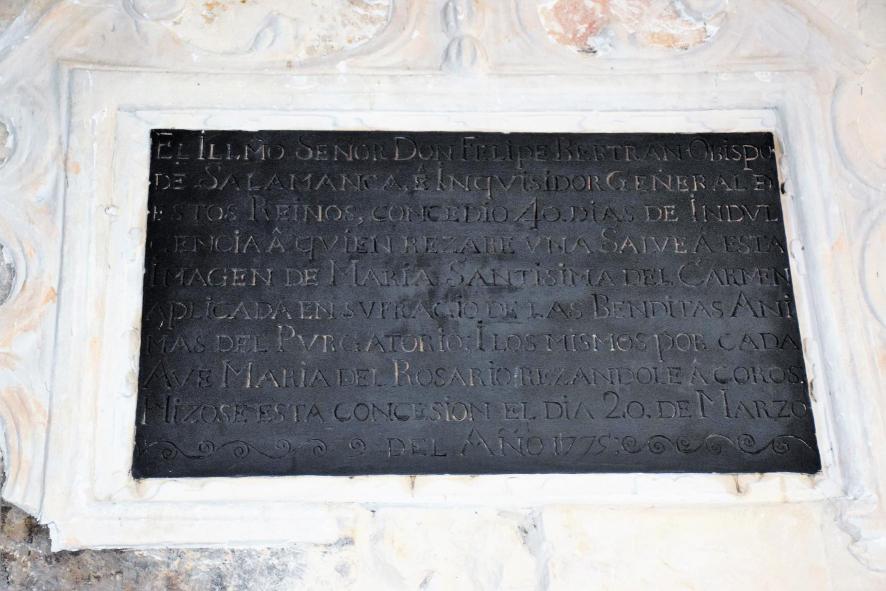 EL ILLMO SENOR DON FELIPE BERTRAN OBISPO
DE SALAMANCA, É INQUISIDOR GENERAL DE
ESTOS REINOS, CONCEDIO 40. DIAS DE INDUL
GENCIA Â QUIEN REZARE VNA SALVE Á ESTA
IMAGEN DE MARIA SANTISIMA DEL CARMEN
APLICADA EN SVFRAGIO DE LAS BENDITAS ANI
MAS DEL PVRGATORIO: I LOS MISMOS POR CADA
AVE MARIA DEL ROSARIO REZANDOLE Á COROS.
HIZOSE ESTA CONCESION EL DIA 20. DE MARZO
DEL AÑO 1775